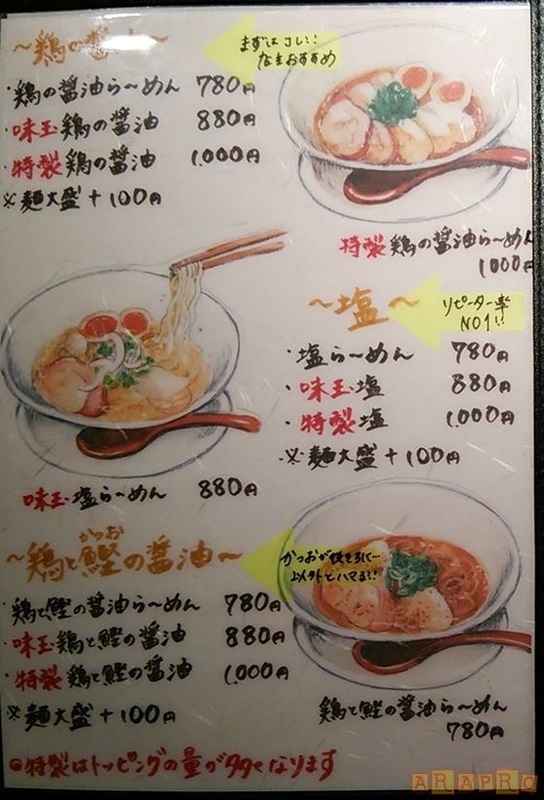 ~鶏の醤油~
まずはコレ!!
なまおすすめ
・鶏の醤油ら~めん 780円
・味玉鶏の醤油 880円
・特製鶏の醤油 1,000円
※麺大盛+100円
特製鶏の醤油ら~めん
1000円
~塩~
リピーター率
NO1!!
・塩ら~めん 780円
・味玉塩 880円
・特製塩 1,000円
※麺大盛+100円
味玉塩ら~めん 880円
かつお
~鶏と鰹の醤油~
かつおが
以外とハマる!!
・鶏と鰹の醤油ら~めん 780円
・味玉鶏と鰹の醤油 880円
・特製鶏と鰹の醤油 1,000円
※麺大盛+100円
鶏と鰹の醤油ら~めん
780円
◎特製はトッピングの量が多くなります
ARAPRO